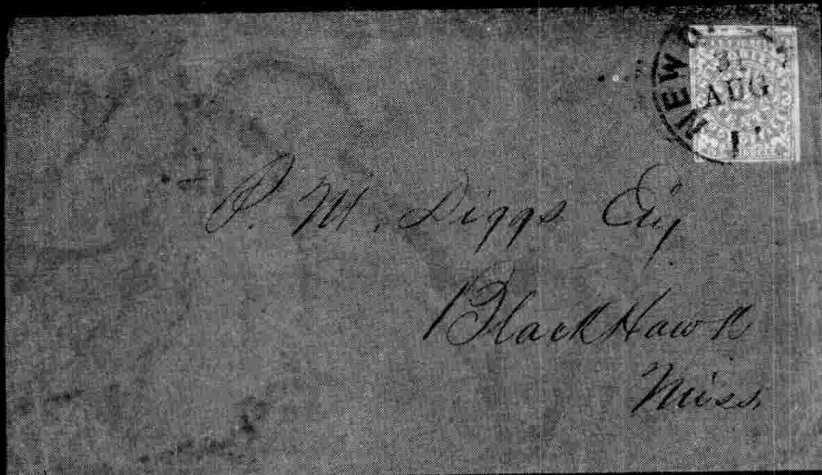 NEW O
31
AUG
P. M. Diggs Esq
Black Hawk
Miss.